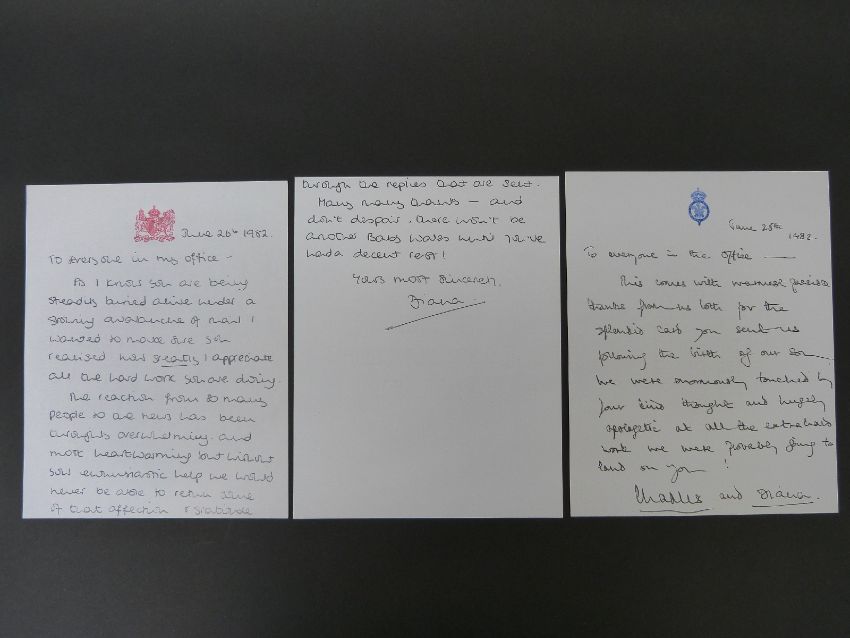 June 26th 1982.
To everyone in my office -
As I know you are being
steadily buried alive under a
growing avalanche of mail I
wanted to make sure you
realised how greatly I appreciate
all the hard work you are doing.
The reaction from so many
people to the news has been
overwhelming and
most heartwarming but without
your enthusiastic help we would
never be able to return some
of that affection & gratitude
through the replies that are sent.
Many many thanks – and
don't despair. there won't be
another Baby Wales until
had a decent rest!
Yours most sincerely,
Diana
June 28th
1982.
To everyone in the office —
This comes with warmest possible
thanks from us both for the
splendid card you sent us
following the birth of our son...
We were enormously touched by
your kind thought and hugely
apologetic at all the extra hard
work we were probably going to
land on you!
Charles and Diana.